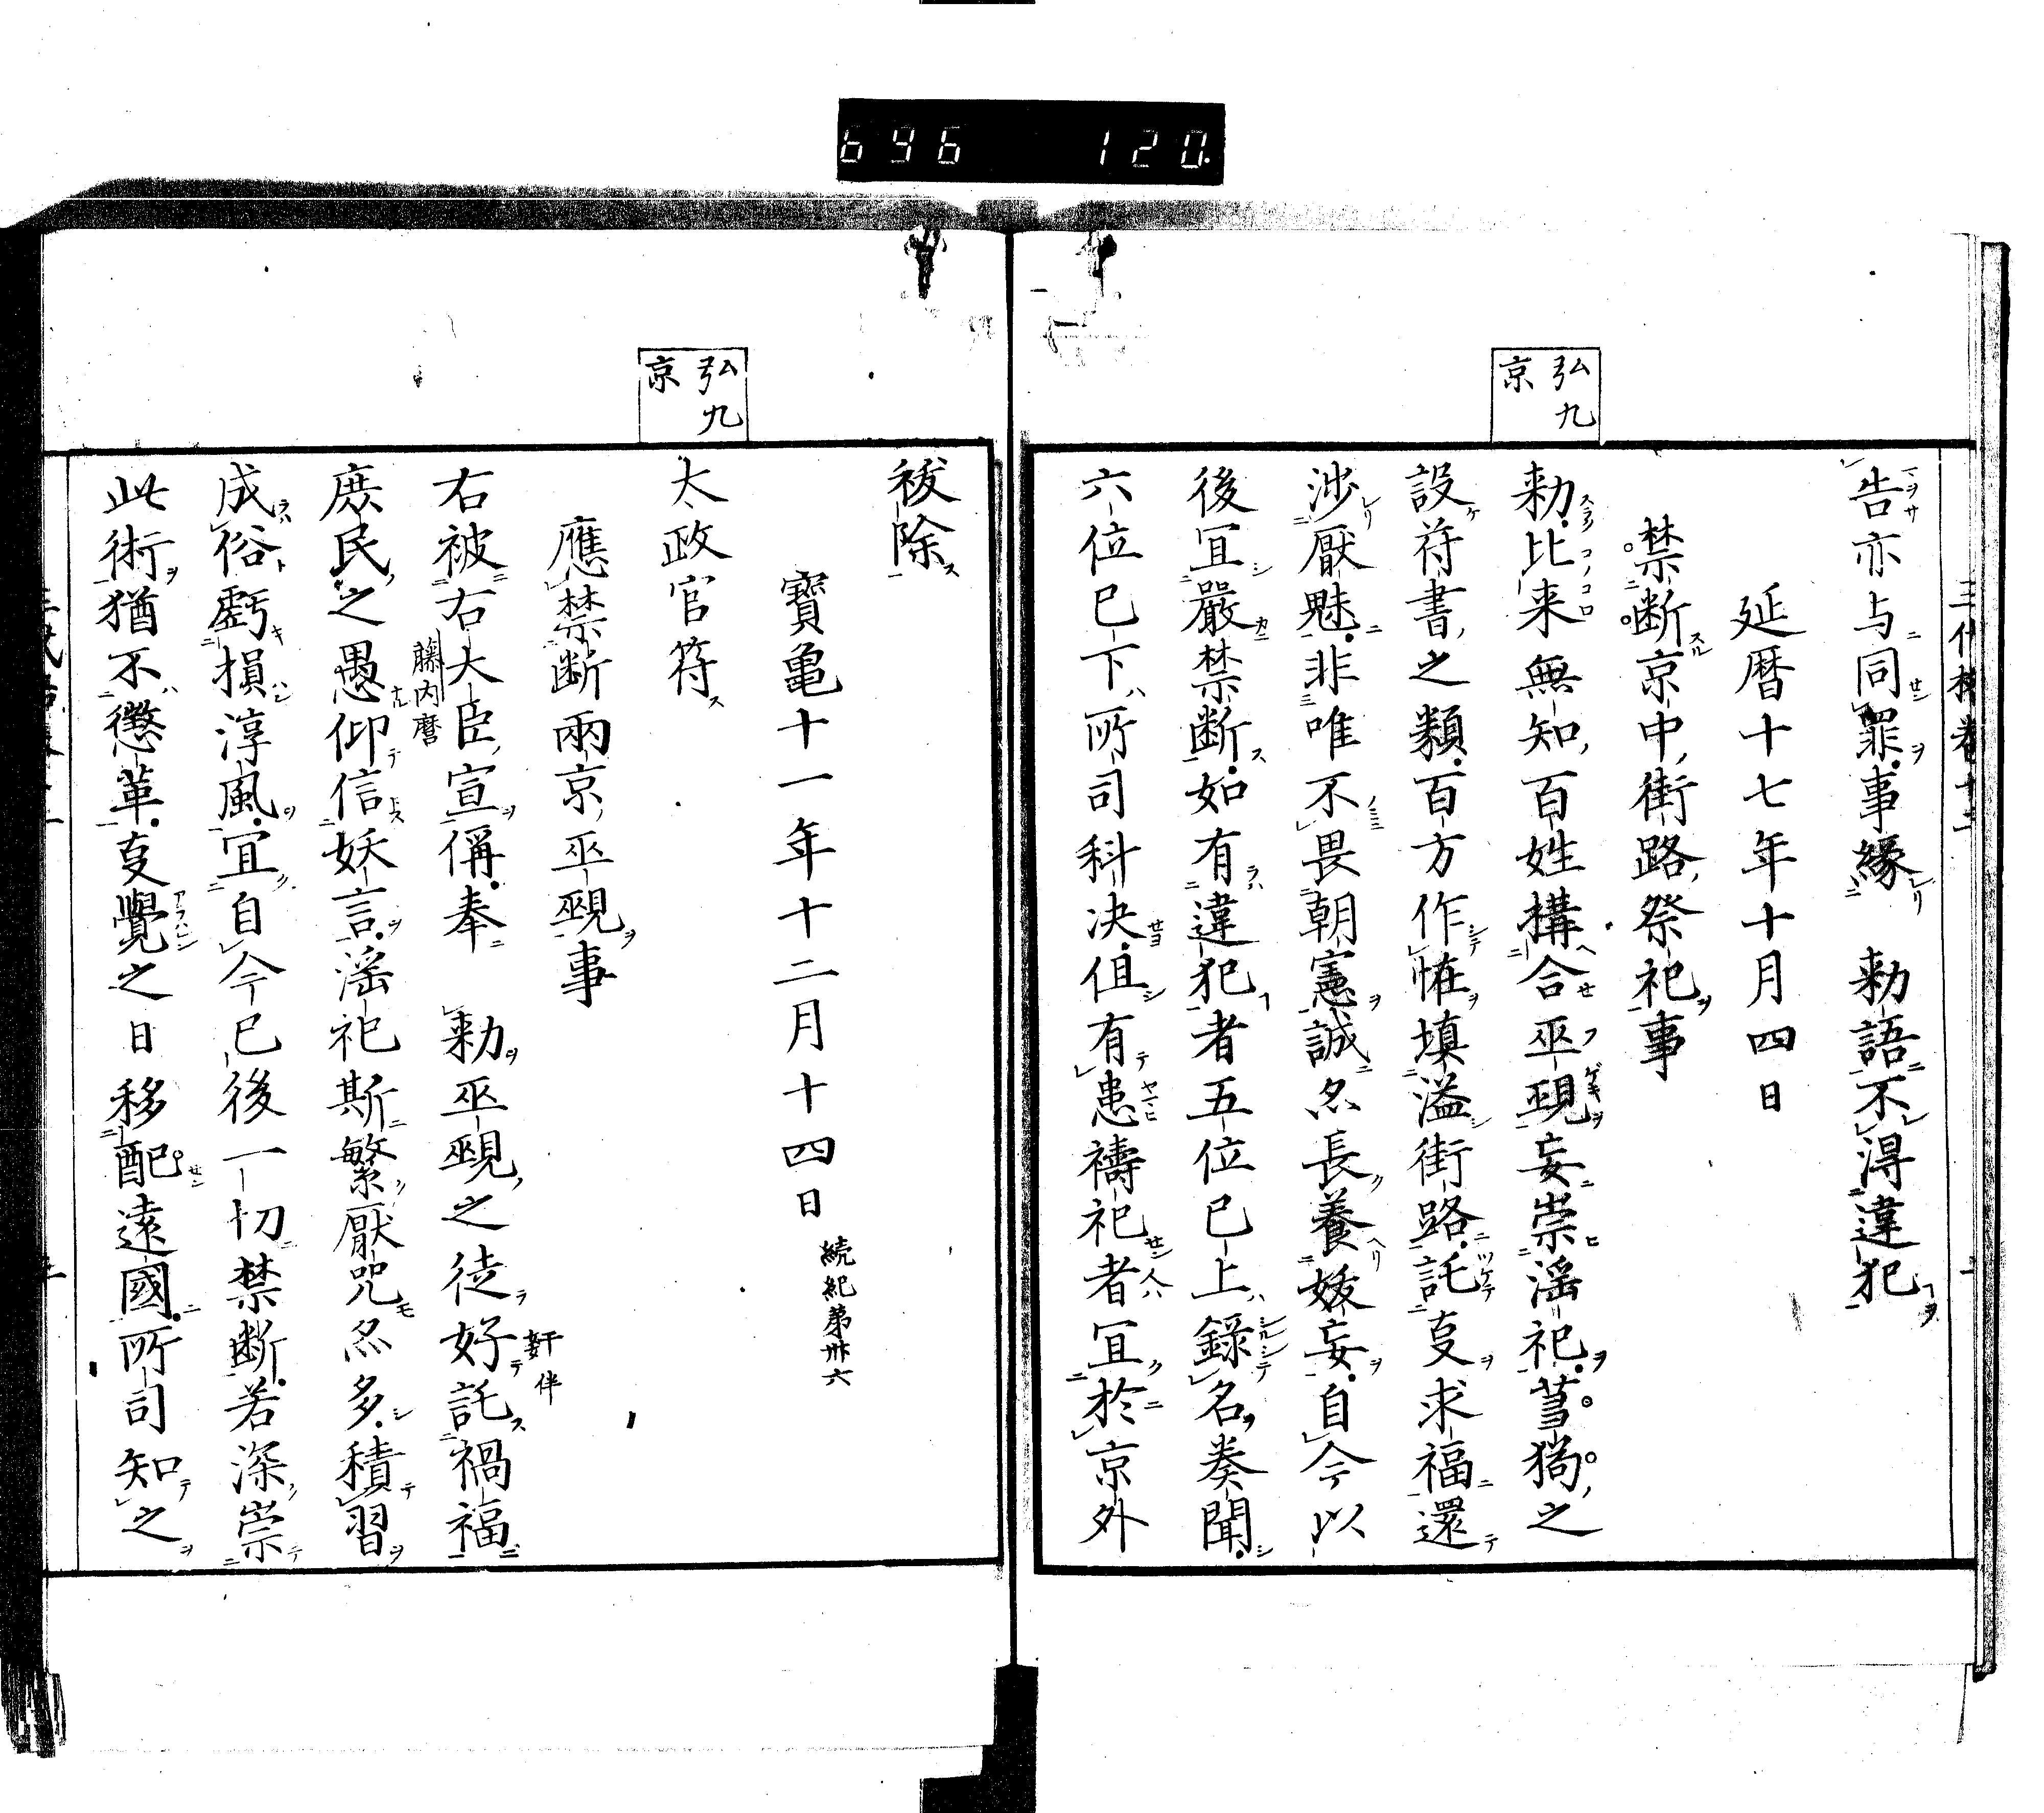 696 120
弘九
京
告亦与同罪事緣 勅語不得違犯
延暦十七年十月四日
禁断京中街路祭祀事
勅比来無知百姓構合巫覡妄崇淫祀蒭狗之
設符書之類百方作恠填溢街路託亊求福還
涉厭魅非唯不畏朝憲誠亦長養妖妄自今以
後宜嚴禁断如有違犯者五位已上録名奏聞
六位已下所司科决但有患禱祀者宜於京外
祓除
寶亀十一年十二月十四日 続紀第卅六
弘九
京
太政官符
應禁断兩京巫覡事
右被右大臣宣偁奉 勅巫覡之徒好託禍福
藤内麿
庶民之愚仰信妖言淫祀斯繁厭咒亦多積習
成俗虧損淳風宜自今已後一切禁断若深崇
此術猶不懲革亊覺之日移配遠國所司知之